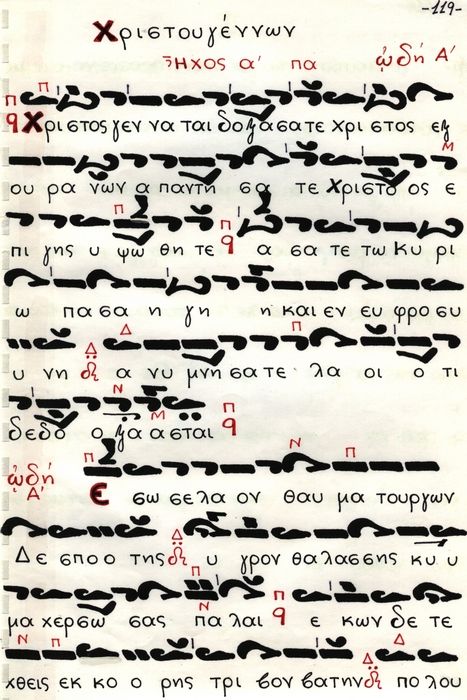 -119-
Χριστουγέννων
Ἦχος α' πα ᾠδή Α'
Χριστος γεν να ται δοξασατε Χρι στος εξ
ου ρα νων α παντη σα τε Χριστο ος ε
πι γης υ ψω θη τε α σα τε τω Κυ ρι
ω πασα η γη η και εν ευ φρο συ
υ νη α νυ μνησατε λα οι ο τι
δεδο ο ξα ασται
ᾠδή Α'
Ε σω σε λα ον θαυ μα τουργων
Δε σπο ο της υ γρον θαλασσης κυ υ
μα χερσω σας πα λαι ε κων δε τε
χθεις εκ κο ο ρης τρι βον βατην πο λου